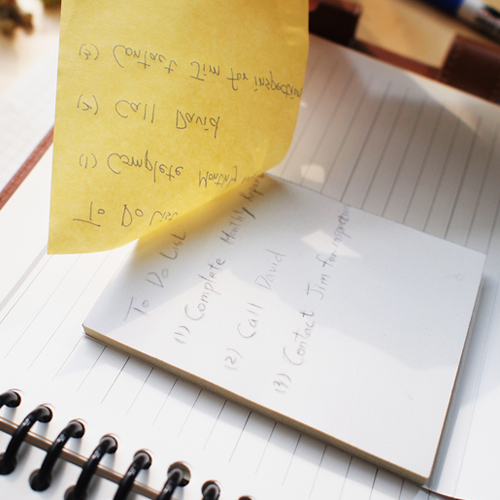 To Do List
(1) Complete Monthly
(2) Call David
(3) Contact Jim for inspection
To Do List
(1) Complete Monthly
(2) Call David
(3) Contact Jim for inspection